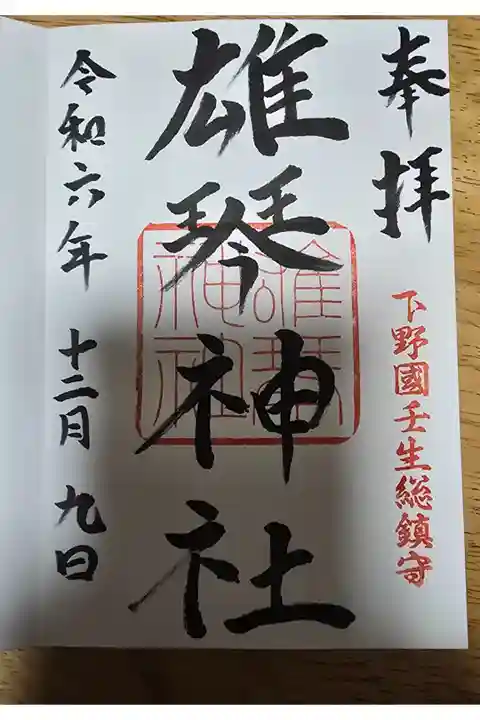 奉拝
下野國壬生総鎮守
雄琴神社
雄琴
神社
令和六年 十二月 九日